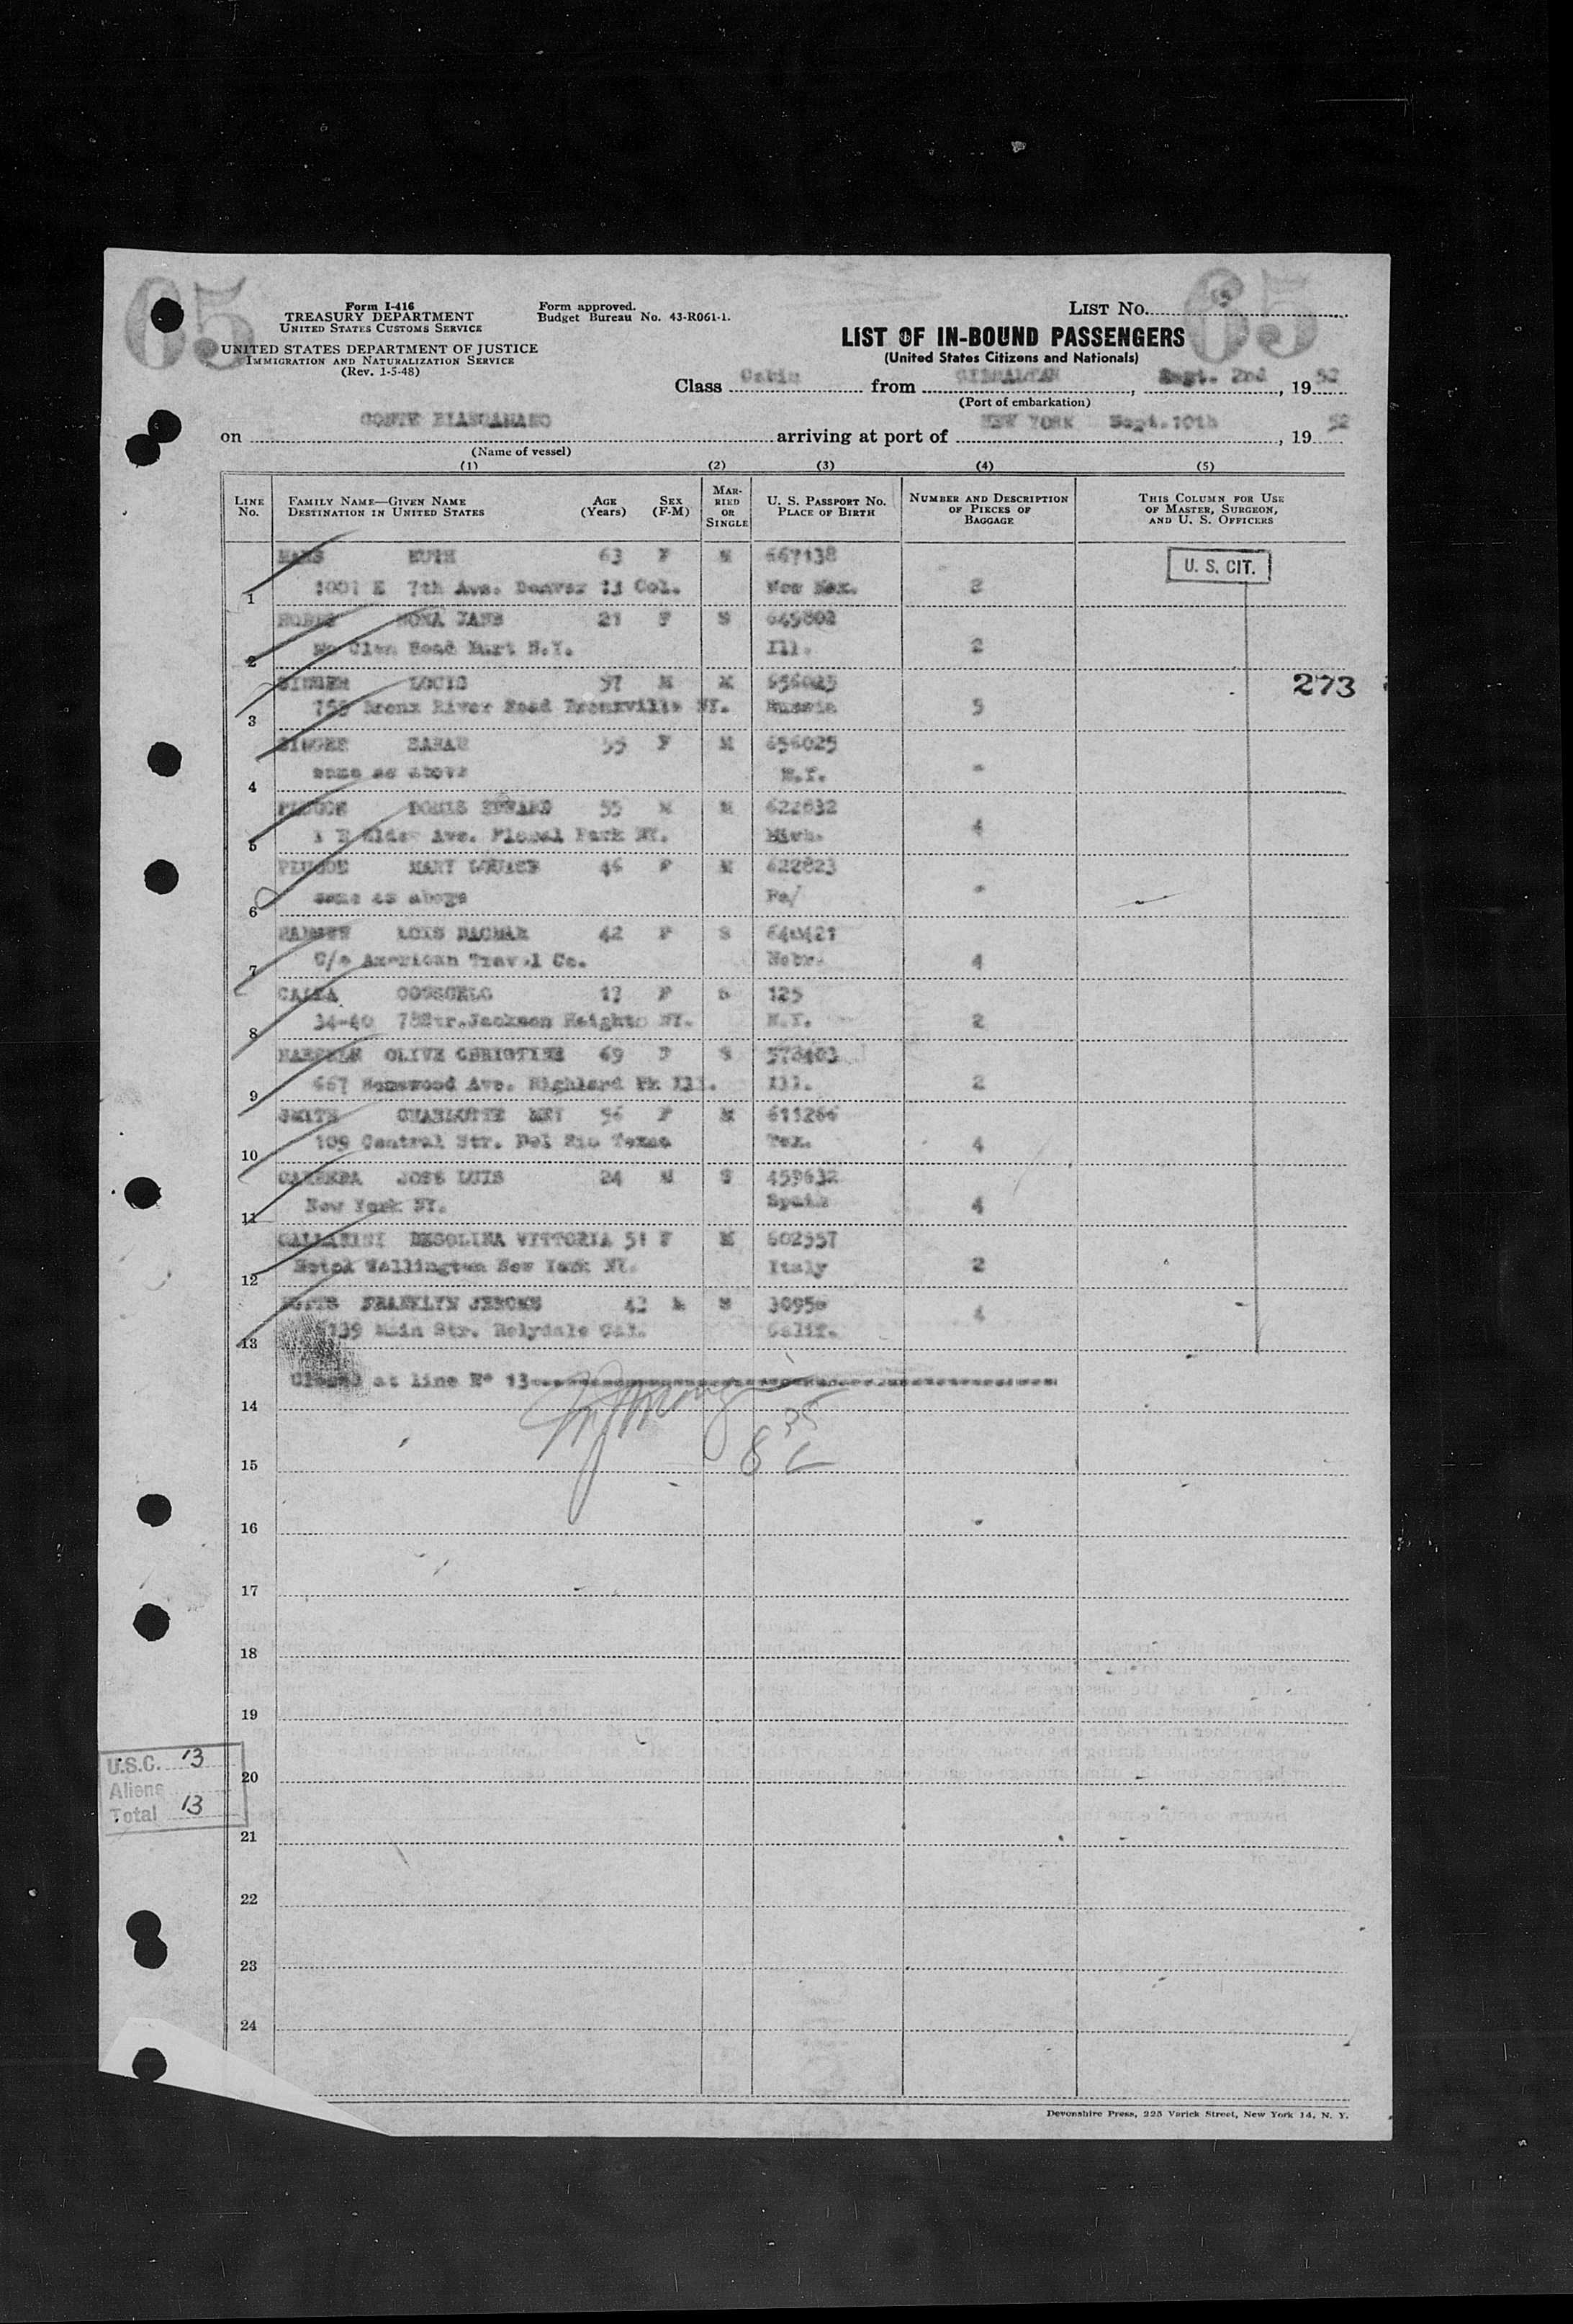 65
65
Form I-416
TREASURY DEPARTMENT
UNITED STATES CUSTOMS SERVICE
UNITED STATES DEPARTMENT OF JUSTICE
IMMIGRATION AND NATURALIZATION SERVICE
(Rev. 1-5-48)
Form approved.
Budget Bureau No. 43-R061-1.
LIST No. 65
LIST OF IN-BOUND PASSENGERS
(United States Citizens and Nationals)
Class Cabin from GIBRALTAR, Sept. 2nd, 1952
(Port of embarkation)
on CONTE BIANCAMANO arriving at port of NEW YORK Sept.10th, 1952
(Name of vessel)
(1) (2) (3) (4) (5)
LINE No. FAMILY NAME—GIVEN NAME DESTINATION IN UNITED STATES AGE (Years) SEX (F-M) MARRIED OR SINGLE U. S. PASSPORT No. PLACE OF BIRTH NUMBER AND DESCRIPTION OF PIECES OF BAGGAGE THIS COLUMN FOR USE OF MASTER, SURGEON, AND U. S. OFFICERS
RUTH 63 F M 667138
U. S. CIT.
1 1001 E 7th Ave. Denver 13 Col. New Mex. 2
NONA JANE 21 F S 645802
2 Glen Road N.Y. Ill. 2
SINGER LOUIS 57 M M 656025
273
3 Bronx River Road Bronxville NY. Russia 5
SINGER SARAH 55 F M 656025
4 same as above N.Y. "
EDWARD 55 M M 622832
5 Ave. Floral Park NY. Mich. 4
MARY LOUISE 46 F M 622823
6 same as above Pa/ "
LOIS DAGMAR 42 F S 640421
7 C/o American Travel Co. Nebr. 4
CONSUELO 17 F S 125
8 34-40 78Str.Jackson Heights NY. N.Y. 2
OLIVE CHRISTINE 69 F S 578403
9 667 Homewood Ave. Highland Pk Ill. Ill. 2
SMITH CHARLOTTE 56 F M 611266
10 109 Central Str. Del Rio Texas Tex. 4
JOSE LUIS 24 M S 459632
11 New York NY. Spain 4
VITTORIA 51 F M 602557
12 Hotel Wellington New York NY. Italy 2
FRANKLYN JEROME 42 M S 4
13 Main Str. Cal. Calif.
Closed at line N° 13
14
15
16
17
18
19
20
21
22
23
24
U.S.C. 13
Aliens
Total 13
Devonshire Press, 225 Varick Street, New York 14, N. Y.